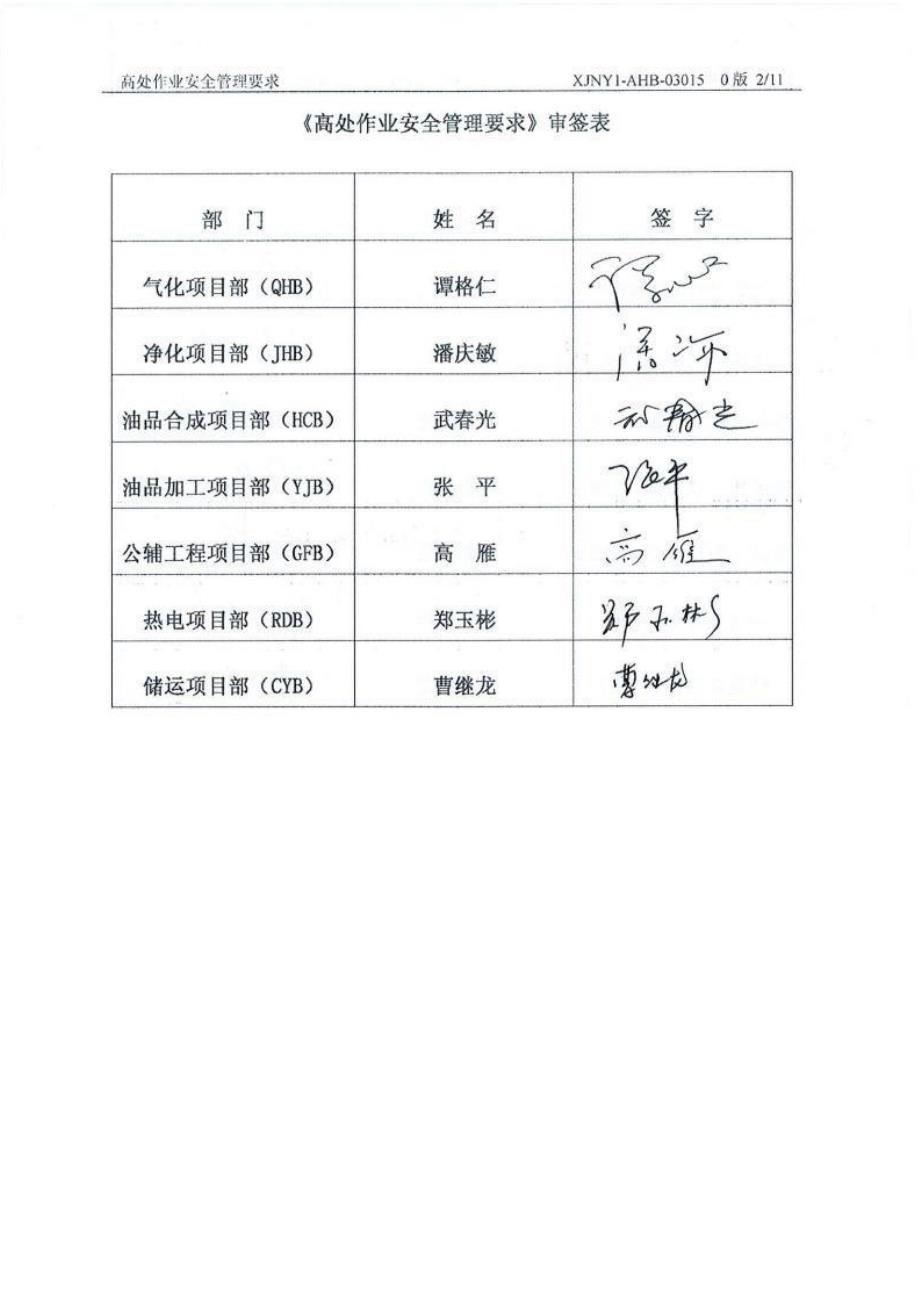 高处作业安全管理要求 XJNY1-AHB-03015 0版 2/11
《高处作业安全管理要求》审签表
部 门 姓 名 签 字
气化项目部（QHB） 谭格仁
净化项目部（JHB） 潘庆敏
油品合成项目部（HCB） 武春光
油品加工项目部（YJB） 张 平 张平
公辅工程项目部（GFB） 高 雁 高雁
热电项目部（RDB） 郑玉彬 郑玉彬
储运项目部（CYB） 曹继龙 曹继龙